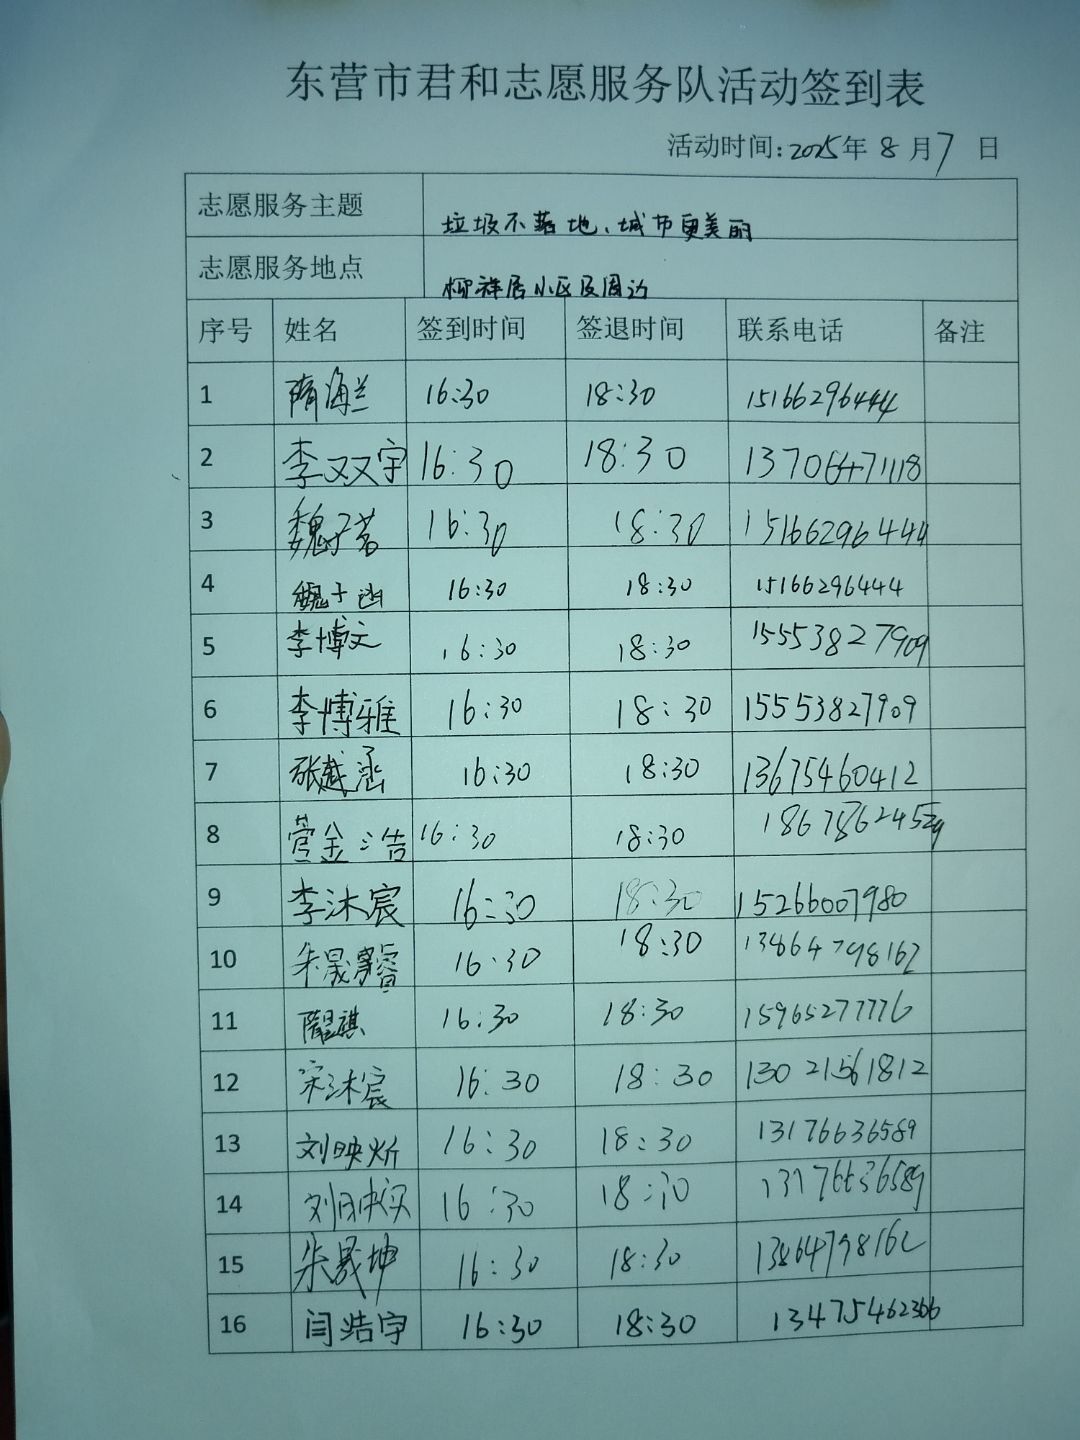 东营市君和志愿服务队活动签到表
活动时间:2025年 8 月 7 日
志愿服务主题 垃圾不落地、城市更美丽
志愿服务地点 柳祥居小区及周边
序号 姓名 签到时间 签退时间 联系电话 备注
1 隋海兰 16:30 18:30 15166296444
2 李双宇 16:30 18:30 13706471118
3 魏子茗 16:30 18:30 15166296444
4 魏子涵 16:30 18:30 15166296444
5 李博文 16:30 18:30 15553827909
6 李博雅 16:30 18:30 15553827909
7 张越涵 16:30 18:30 13675460412
8 16:30 18:30
9 李沐宸 16:30 18:30 15266007980
10 朱晟睿 16:30 18:30 13864798162
11 16:30 18:30 15965277776
12 宋沐宸 16:30 18:30 13021561812
13 刘映炘 16:30 18:30 13176636589
14 16:30 18:30 13176636589
15 朱晟坤 16:30 18:30 13864798162
16 闫浩宇 16:30 18:30 13475462366